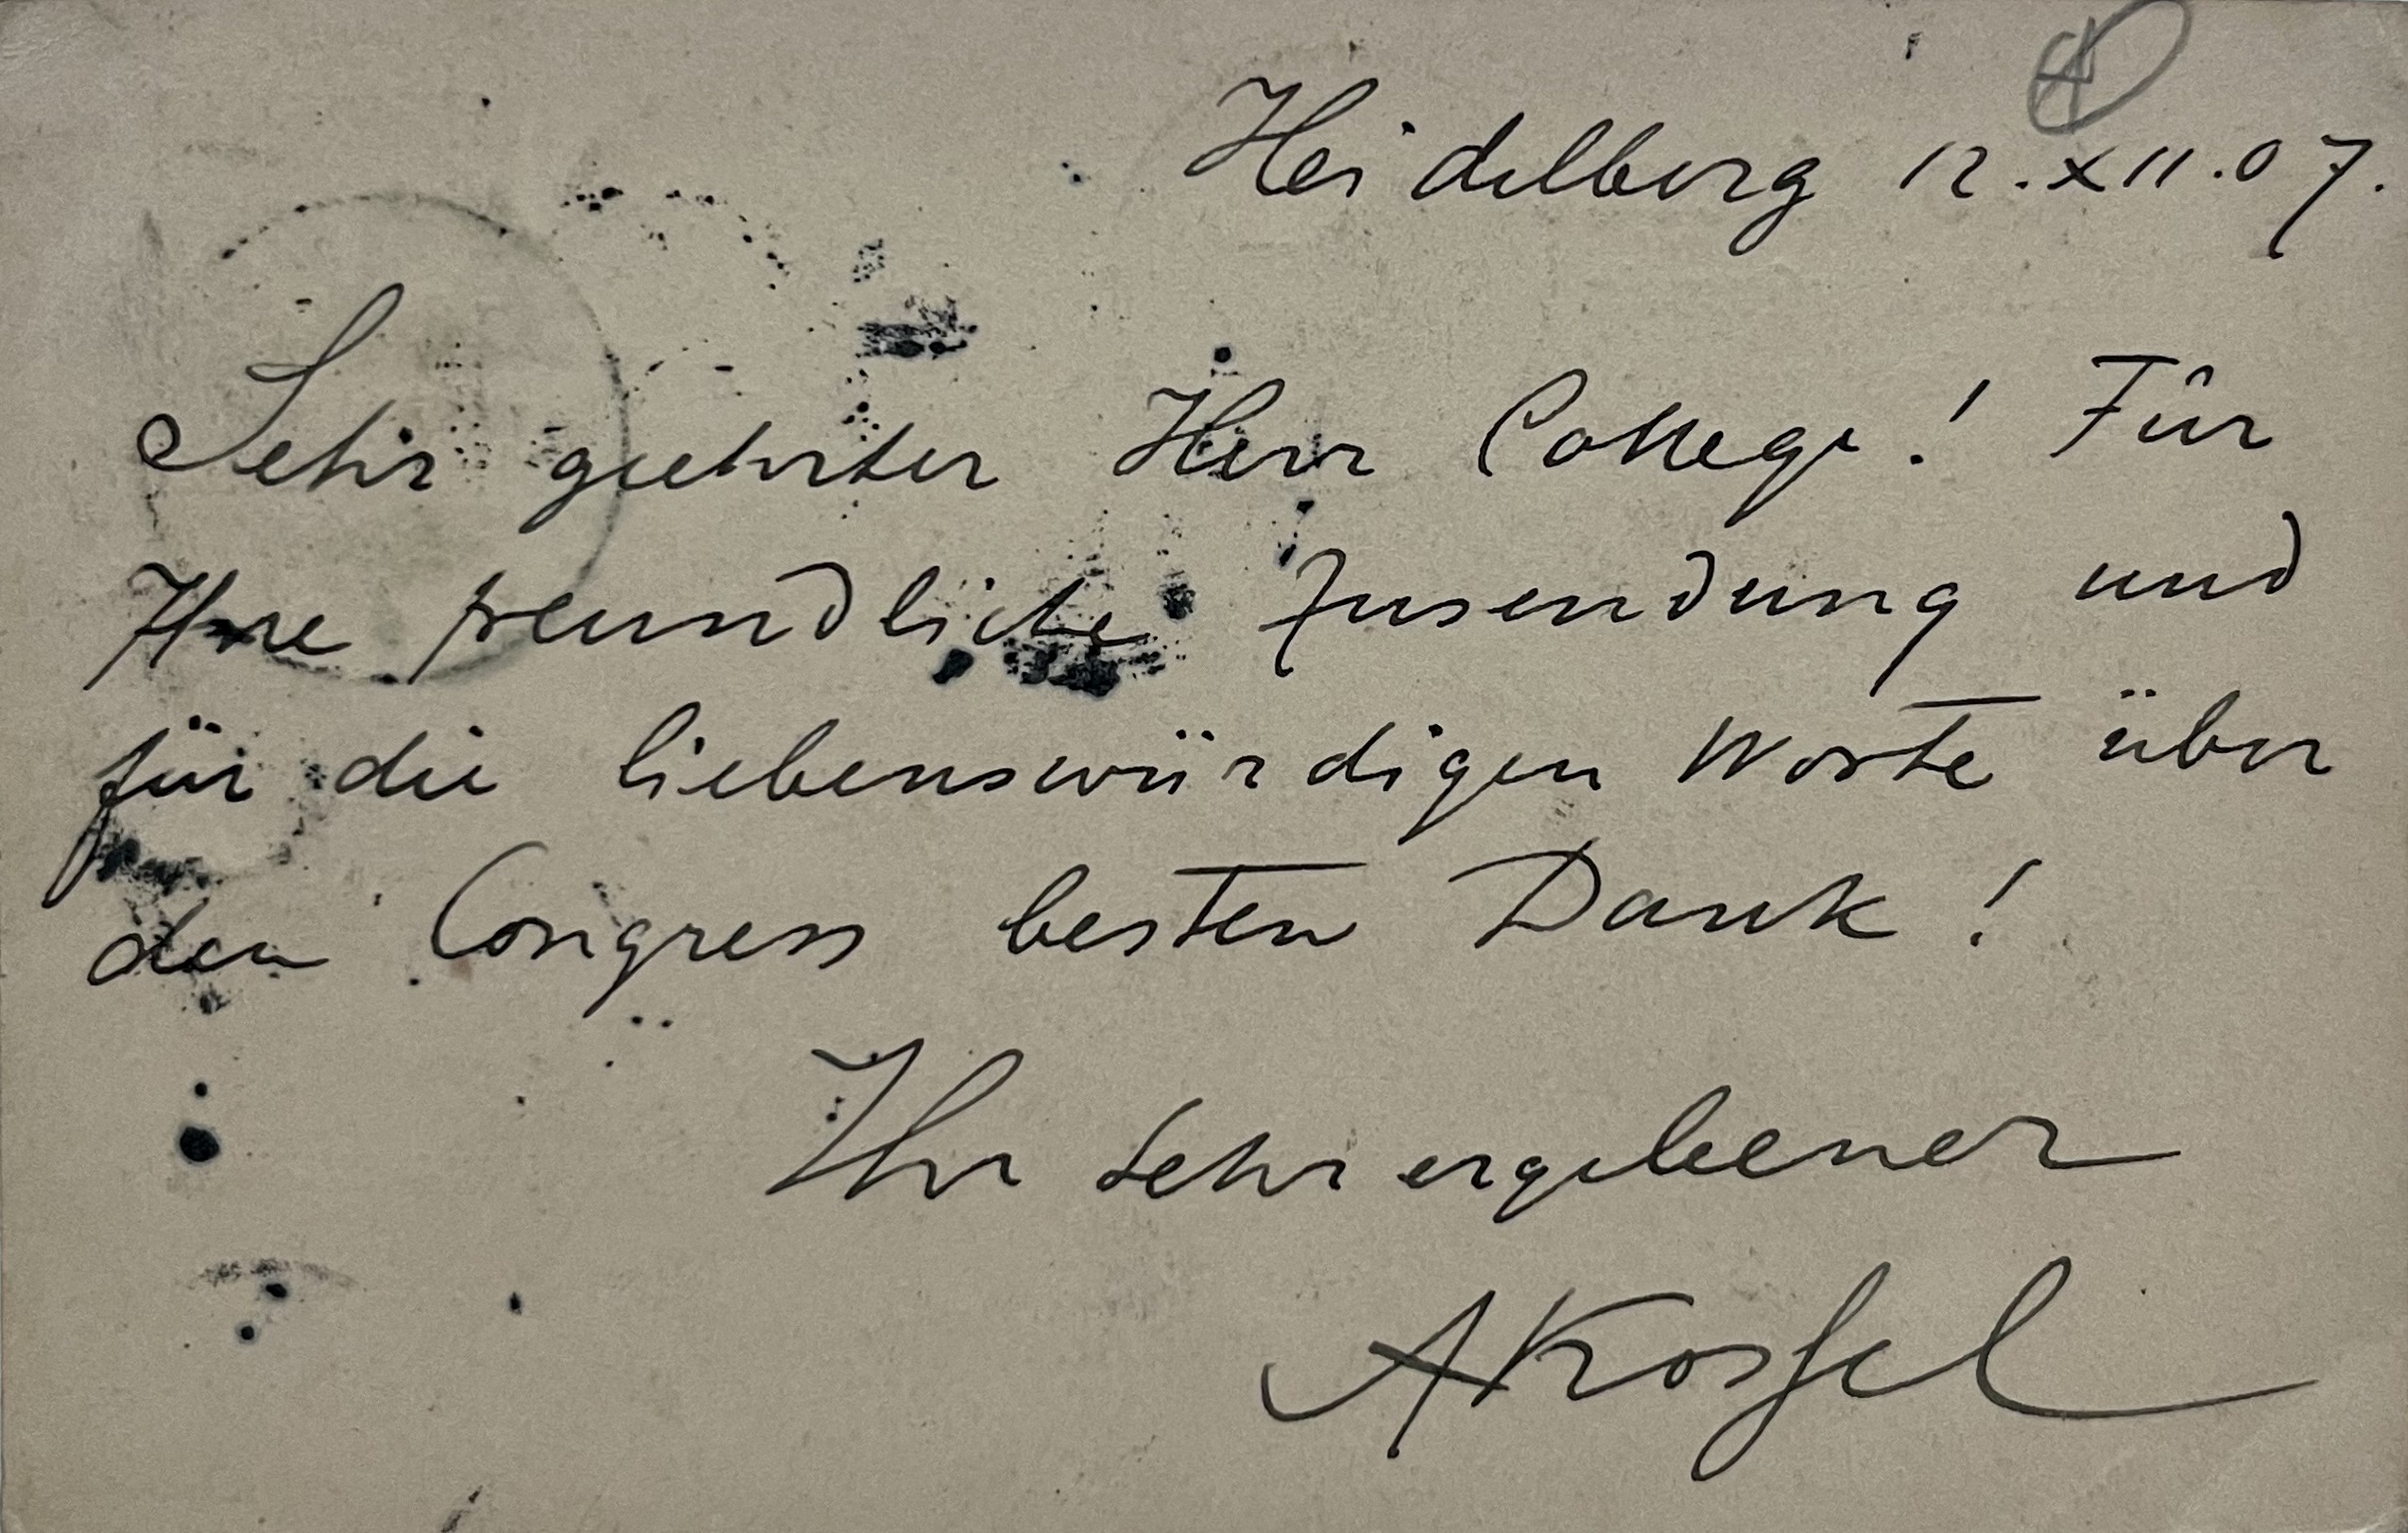 Heidelberg 12.XII.07.
Sehr geehrter Herr College! Für
Ihre freundliche Zusendung und
für die liebenswürdigen Worte über
den Congress besten Dank!
Ihr sehr ergebener
AKossel